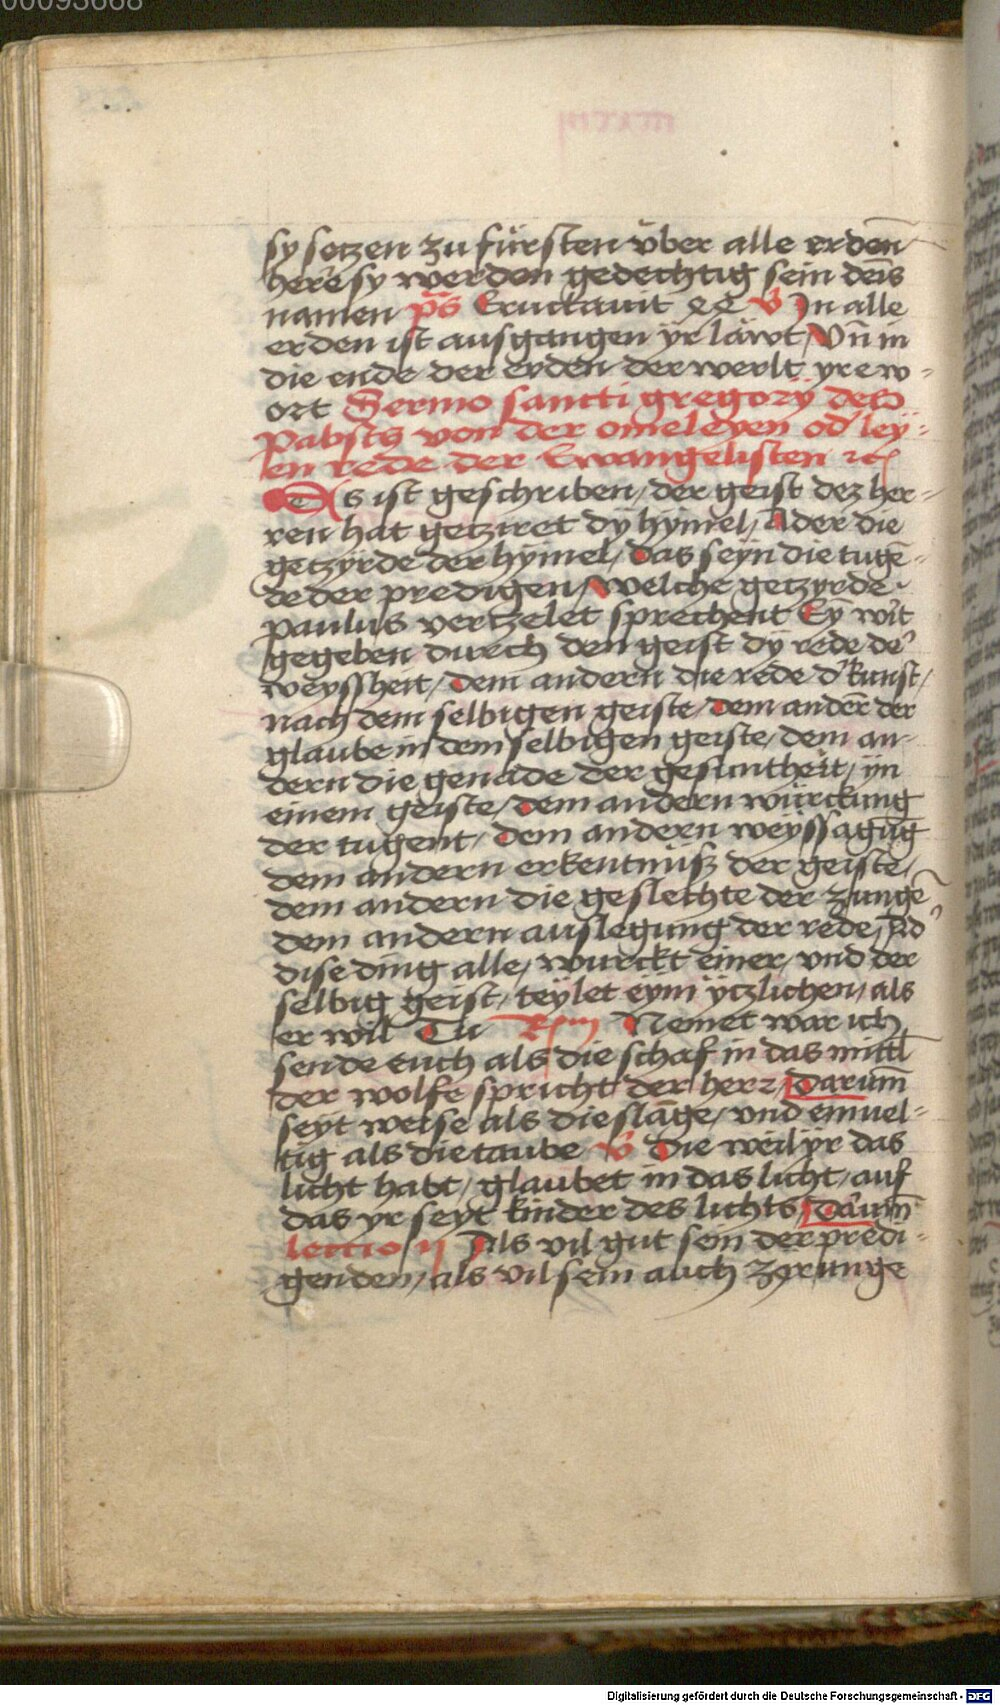 00093668
sy setzen zu fürsten über alle erden̄
here sy werden gedechtig sein deīs
namen p̄s Eructauit V In alle
erden ist ausgangen yr läwt Vn̄ in
die ende der erden der werlt yre w-
ort Sermo sancti gregorÿ des
Pabsts von der omeleyen od' ley-
en rede der Ewangelisten ⁊c
Es ist geschriben, der geist dez her-
ren hat getziret dy hym̄el, Ader die
getzyrde der hym̄el, das seyn die tugē-
de der predigen, welche getzyrde
paulus vertzelet sprechent Ey wirt
gegeben durch den geist dy rede de'
weyssheit, dem andern die rede d' kunst,
nach dem selbigen geiste, dem andern̄ der
glaube in dem selbigen geiste, dem an-
dern die genade der gesuntheit, yn
einem geiste, dem andern würckung
der tugent, dem andern weyssagūg
dem andern erkentnüß der geiste,
dem andern die geslechte der zungē
dem andern auslegung der rede, vnd'
dise ding alle, wurckt einer, vnd der
selbig geist, teylet eym ytzlichen, als
er wil Tu Rm Nemet war ich
sende euch als die schaf in das mittl̄
der wolfe spricht der herr, Darum̄
seyt weise als die slāge, vnd einuel-
tig als die taube V Die weil yr das
licht habt, glaubet in das licht, auf
das yr seyt kinder des lichts, Da'um̄
lectio ij Als vil gut sein der predi-
genden, als vil sein auch zyrunge
Digitalisierung gefördert durch die Deutsche Forschungsgemeinschaft - DFG